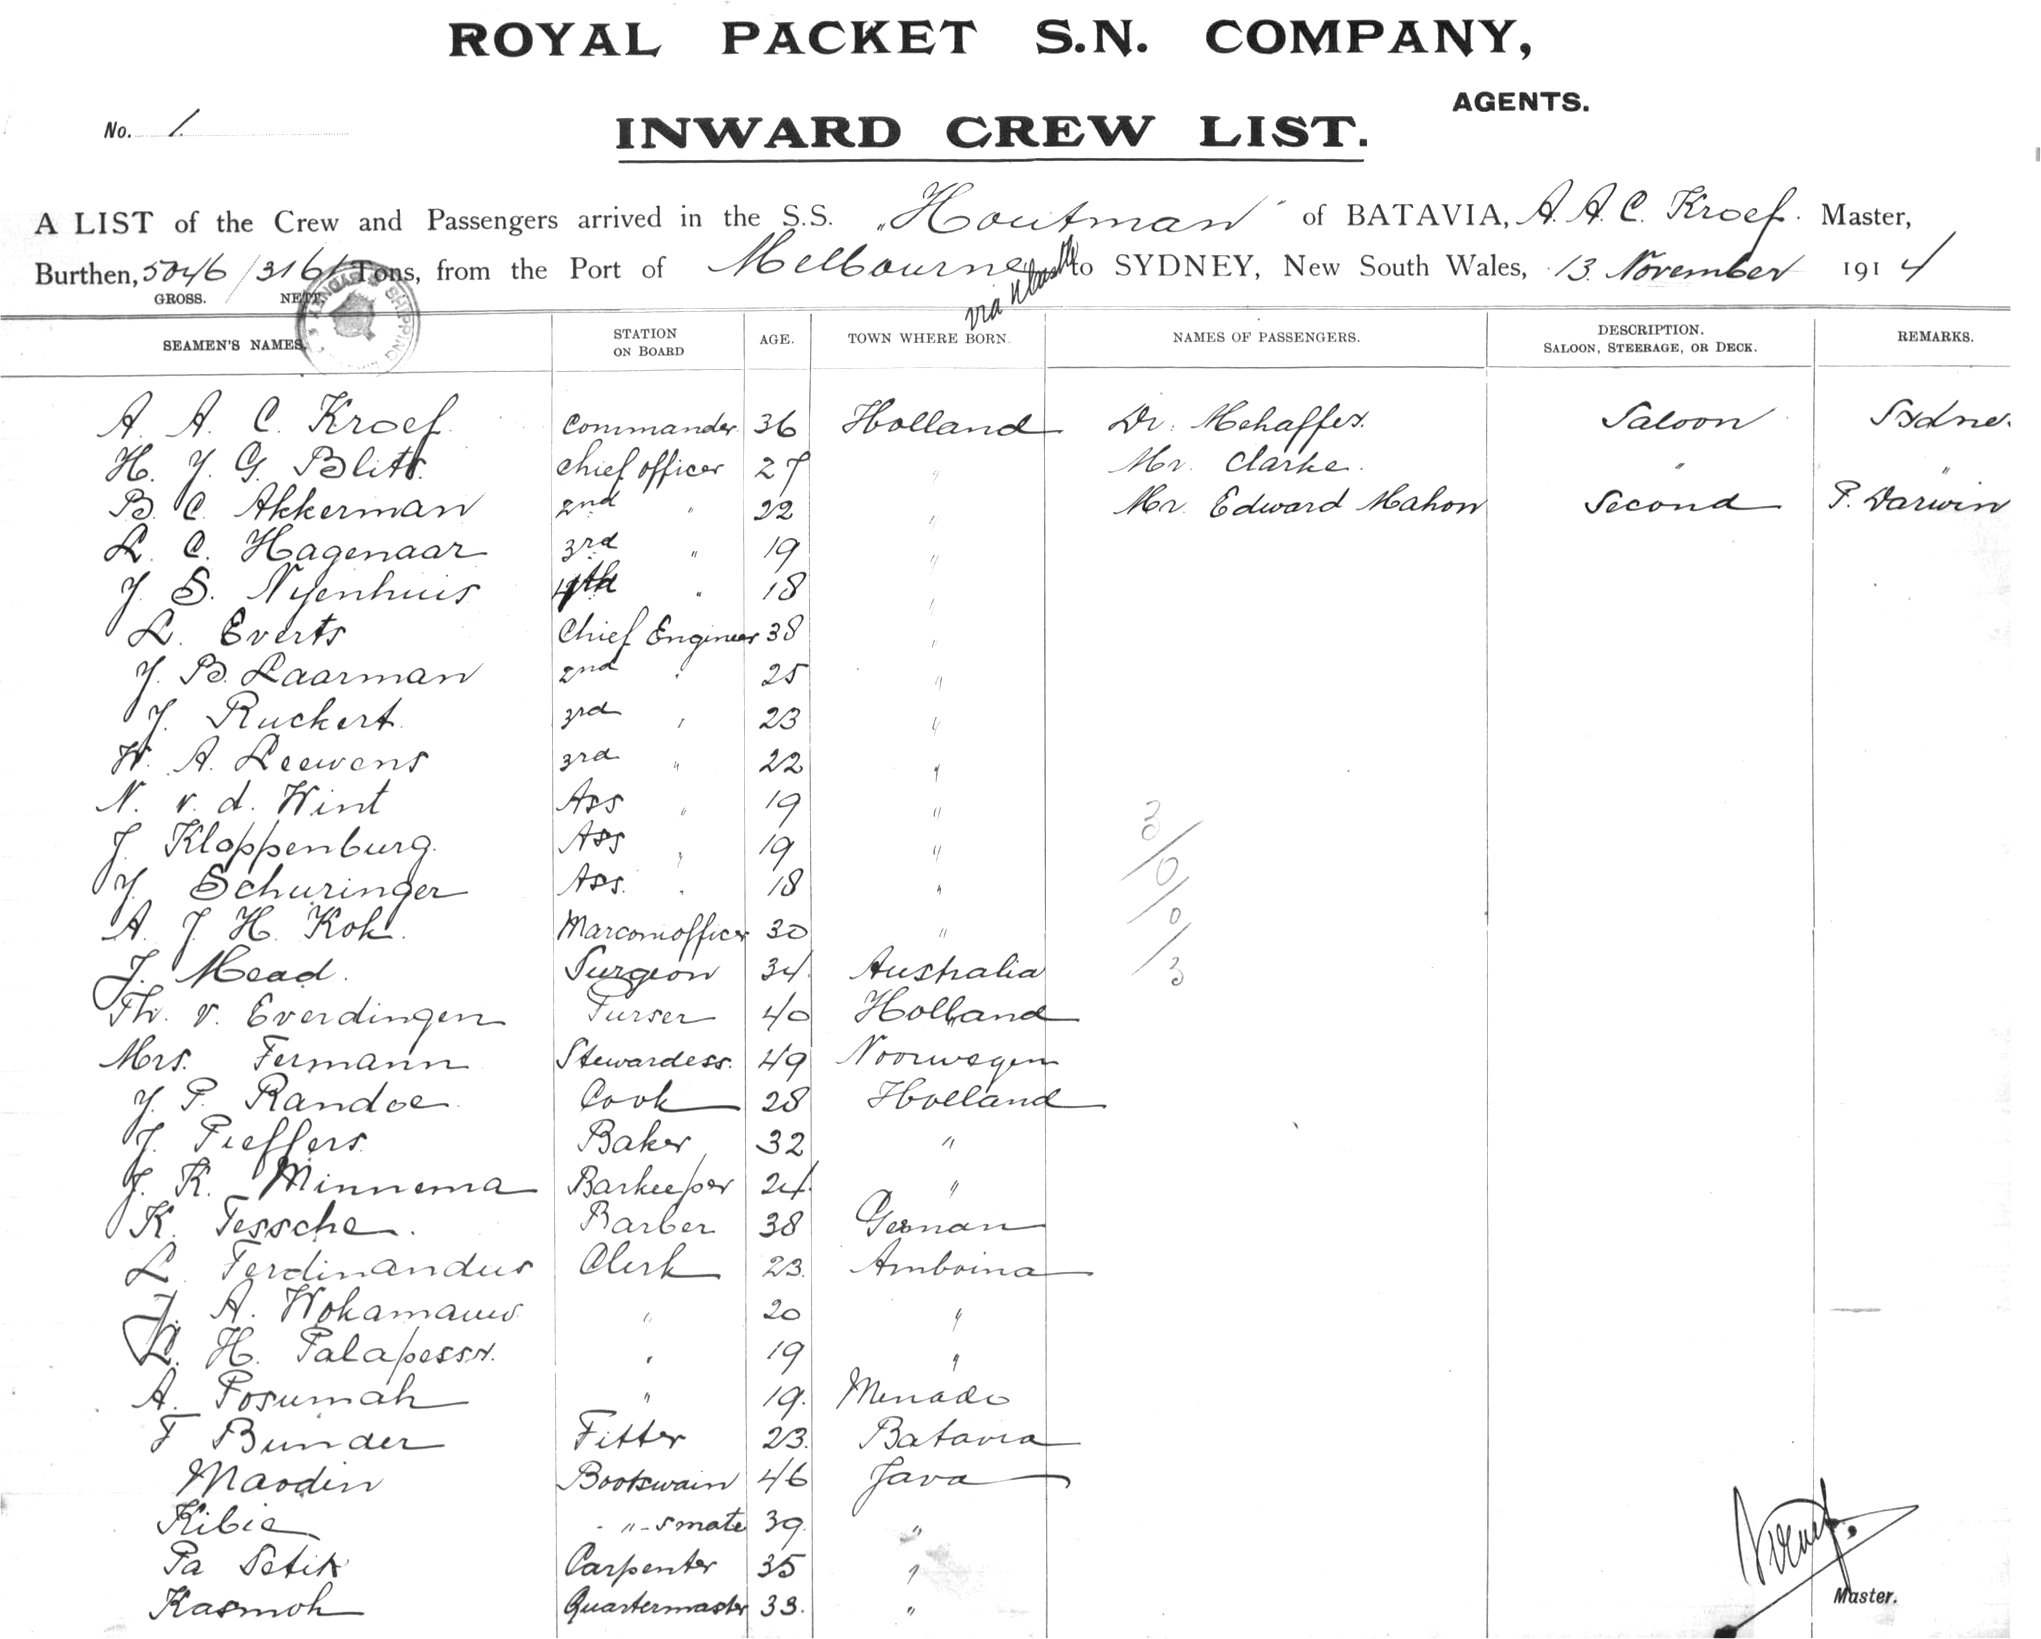 ROYAL PACKET S.N. COMPANY,
AGENTS.
No. 1.
INWARD CREW LIST.
A LIST of the Crew and Passengers arrived in the S.S. "Houtman" of BATAVIA, A. A. C. Kroef. Master,
Burthen, 5046/3161 Tons, from the Port of Melbourne via to SYDNEY, New South Wales, 13 November 1914
GROSS. NETT.
SEAMEN'S NAMES. STATION ON BOARD AGE. TOWN WHERE BORN. NAMES OF PASSENGERS. DESCRIPTION. SALOON, STEERAGE, OR DECK. REMARKS.
A. A. C. Kroef. Commander 36 Holland Dr. Mehaffey. Saloon Sydney.
H. J. G. Blits. Chief officer 27 " Mr. Clarke. " "
B. C. Akkerman 2nd " 22 " Mr. Edward Mahon Second P. Darwin
L. C. Hagenaar 3rd " 19 "
J. S. Nyenhuis 4th " 18 "
L. Everts Chief Engineer 38 "
J. B. Laarman 2nd " 25 "
J. Ruckert. 3rd " 23 "
W. A. Leewens 3rd " 22 "
N. v. d. Wint Ass " 19 "
J. Kloppenburg. Ass " 19 "
J. Schuringer Ass. " 18 "
A. J. H. Kok. Marconiofficer 30 "
J. Mead. Surgeon 34. Australia
Th. v. Everdingen Purser 40 Holland
Mrs. Fermann Stewardess. 49 Noorwegen
J. P. Randoe. Cook 28 Holland
J. Pieffers Baker 32 "
J. K. Minnema Barkeeper 24. "
K. Tessche. Barber 38 German
L. Ferdinandus Clerk 23. Amboina
J. A. Wokamauw " 20 "
L. H. Palapessy. " 19 "
A. Posumah " 19. Menado
F Bunder Fitter 23. Batavia
Maodin Bootswain 46 Java
Kibia " - smate 39. "
Pa Setik Carpenter 35 "
Kasmoh Quartermaster 33. "
3/0/0/3
Master.